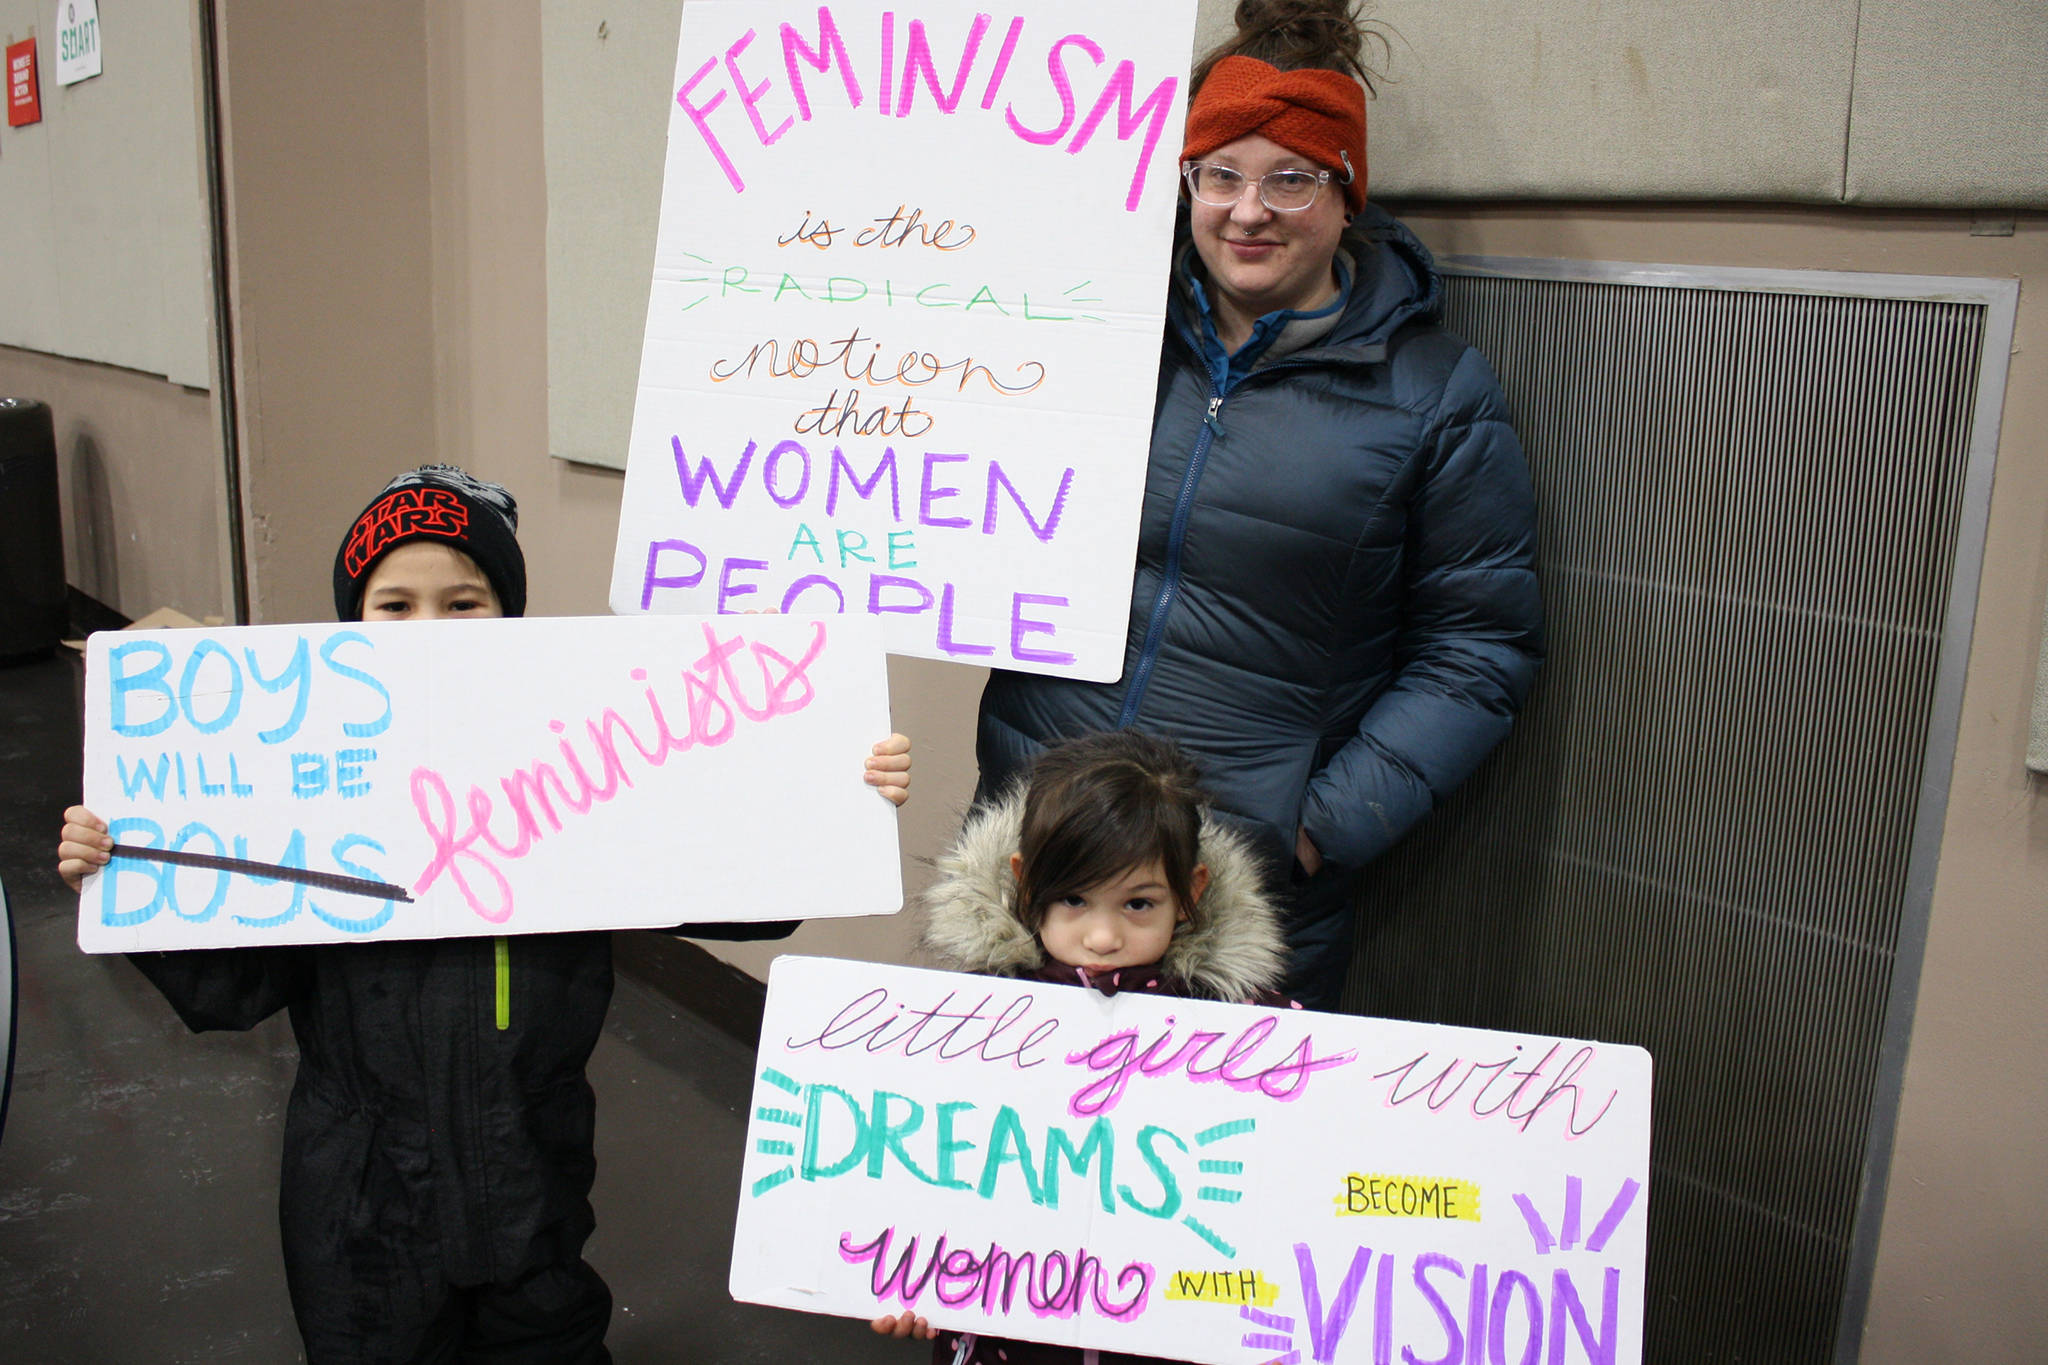 SMART
WOMEN
DEMAND
ACTION
FEMINISM
is the
RADICAL
notion
that
WOMEN
ARE
PEOPLE
STAR
WARS
BOYS
WILL BE
BOYS feminists
little girls with
DREAMS
BECOME
women WITH VISION